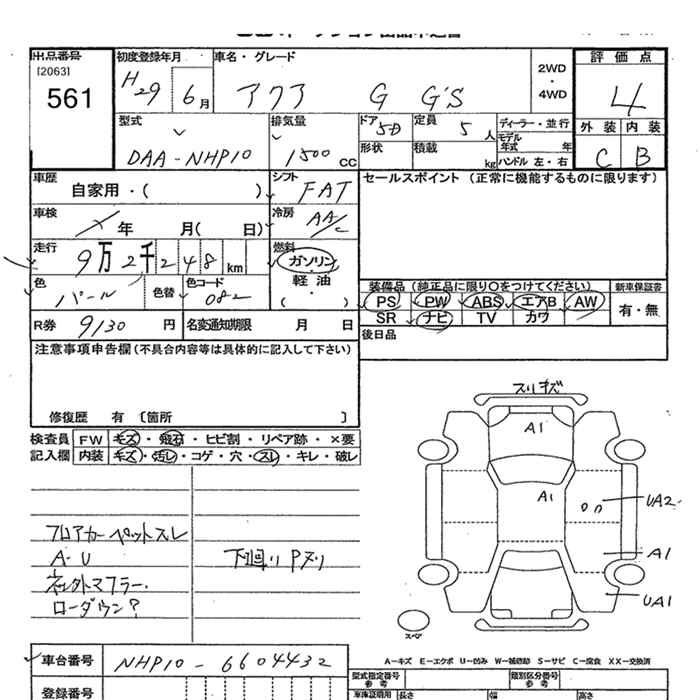 出品番号 初度登録年月 車名・グレード 評価点
[2063]
561 H29 6月 アクア G G'S 2WD・4WD 4
外装 内装
C B
型式 排気量 ドア 定員 ディーラー・並行
DAA-NHP10 1500cc 5D 5人 モデル年式 年
形状 積載 kg ハンドル 左・右
車歴 自家用・( ) シフト FAT セールスポイント(正常に機能するものに限ります)
車検 年 月( 日) 冷房 AAC
走行 9万2千248km 燃料 ガソリン・軽油・( )
色 パール 色替 色コード 082
装備品(純正品に限り○をつけてください) 新車保証書
PS PW ABS エアB AW 有・無
SR ナビ TV カワ
R券 9130円 名変通知期限 月 日 後日品
注意事項申告欄(不具合内容等は具体的に記入して下さい)
修復歴 有〔箇所 〕
検査員記入欄 FW キズ・飛石・ヒビ割・リペア跡・×要
内装 キズ・汚レ・コゲ・穴・スレ・キレ・破レ
スリキズ
A1
A1
UA2
A1
UA1
スペア
フロアカーペットスレ
A・U 下回りPヌリ
社外マフラー・
ローダウン?
A-キズ E-エクボ U-凹み W-補修跡 S-サビ C-腐食 XX-交換済
車台番号 NHP10-6604432
型式指定番号 参考 類別区分番号 参考
登録番号 車庫証明用 長さ 幅 高さ